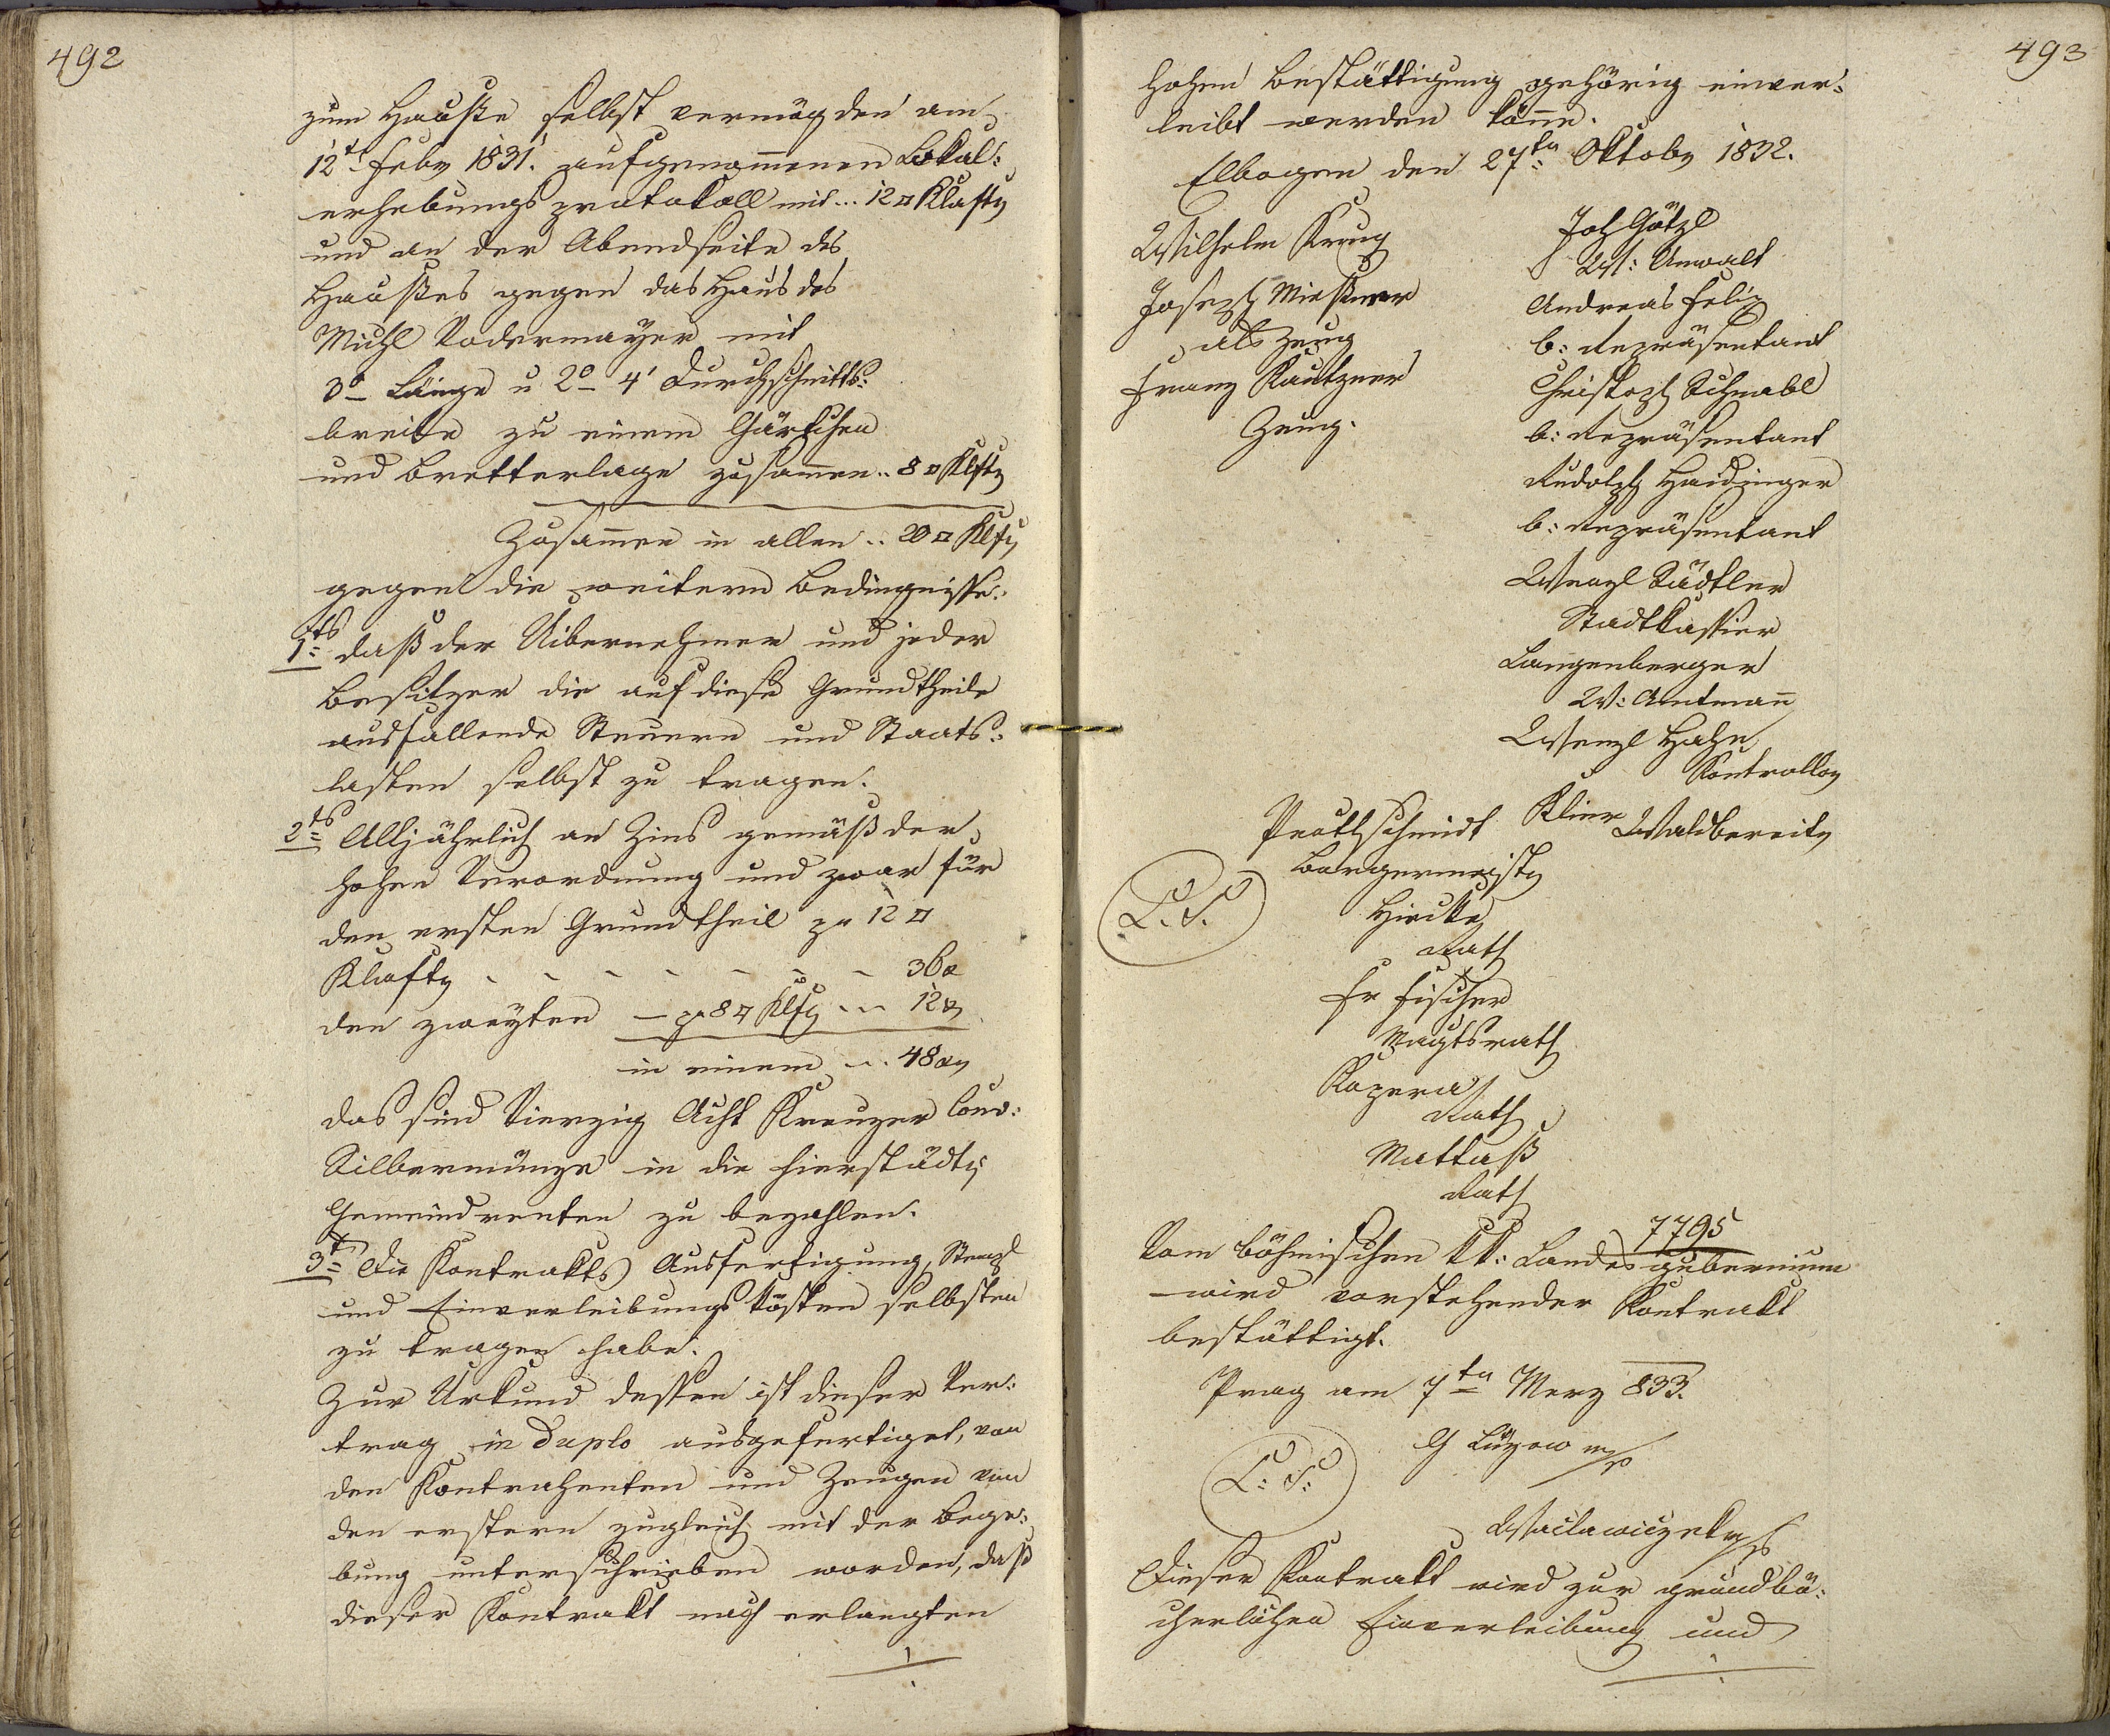 492
zum Hauße selbst vermög den am
12t Feby 1831. aufgenom̅enen Lokal:
erhebungs protokoll mit... 12 □ Klafty
und an der Abendseite des
Haußes gegen das Haus des
Michl Vodermayer mit
3° Länge u 2° 4' Durchschnitts:
breite zu einem Gärtchen
und Bretterlage zusam̅en.. 8 □ Klfty
Zusam̅en in allen .. 20 □ Klfty
gegen die weitern Bedingnisse:
1tns daß der Uibernehmer und jeder
Besitzer die auf diese Grundtheile
ausfallende Steuern und Staats:
lasten selbst zu tragen.
2tns Alljährlich an Zins gemäß der
hohen Verordnung und zwar für
den ersten Grundtheil pr 12 □
Klafty - - - - - - - 36 x
den zweyten — pr 8 □ Klfty ... 12 x
in einem ... 48 xy
das sind Vierzig Acht Kreuzer Conv:
Silbermünze in die hierstädty
Gemeindrenten zu bezahlen.
3t Die Kontrakts Ausfertigung, Stempl
und Einverleibungs kösten selbsten
zu tragen habe.
Zur Urkund dessen ist dieser Ver:
trag in Duplo ausgefertiget, von
den Kontrahenten und Zeugen von
den erstern zugleich mit der Bege:
bung unterschrieben worden, daß
dieser Kontrakt nach erlangten
493
hohen Bestättigung gehörig einver:
leibt werden kön̅e.
Elbogen den 27ten Oktoby 1832.
Wilhelm Krug
Joseph Mießner
als Zeug
Franz Kautzner
Zeug.
Joh Götzl
W: Anwalt
Andreas Felix
b: Repräsentant
Christoph Schnabl
b: Repräsentant
Rudolph Haidinger
b: Repräsentant
Wenzl Städtler
Stadtkassier
Langenberger
W: Amtman̅
Wenzl Hahn
Kontrolloy
Klier Waldbereity
Prothschmidt
Burgermeisty
L. S.
Hirtke
Rath
Fr Fischer
Magtsrath
Kopera
Rath
Mattaß
Rath
7795
Vom böhmischen kk: Landesgubernium
wird vorstehender Kontrakt
bestättigt.
Prag am 7ten Merz 833.
G Lüzow m/p
L: S:
Waclawiczek m/p
Dieser Kontrakt wird zur grundbü:
cherlichen Einverleibung und